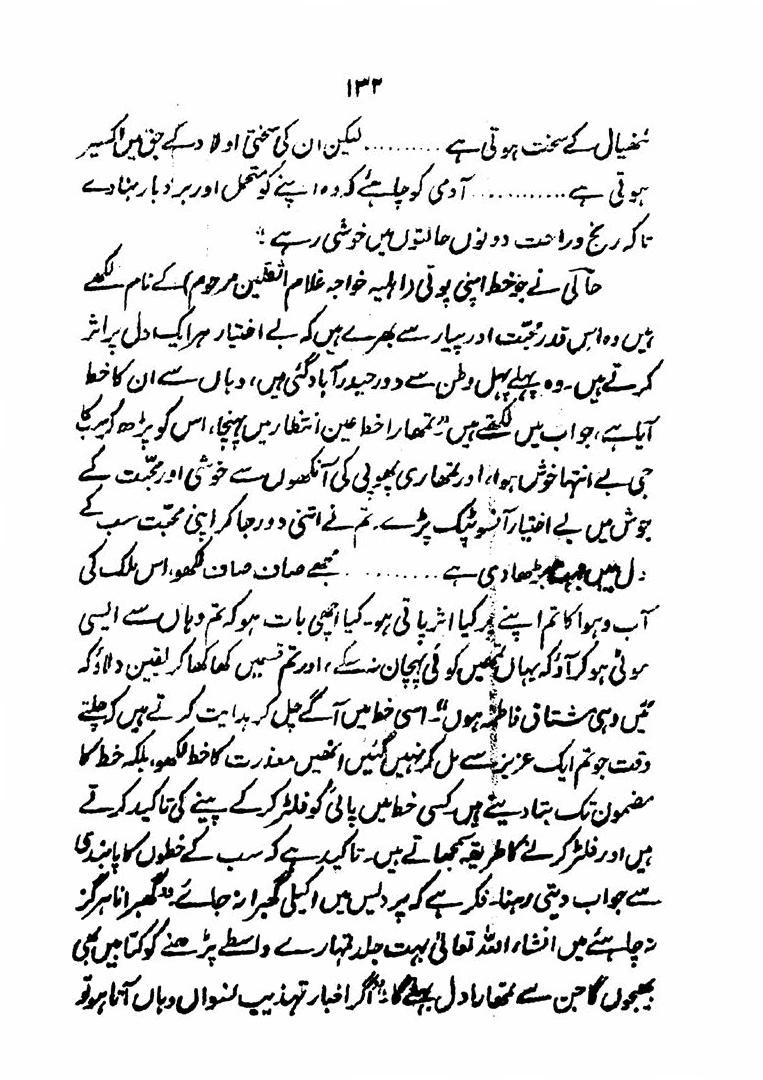 ۱۳۲
ننھیال کے سخت ہوتی ہے .......... لیکن ان کی سختی اولاد کے حق میں اکسیر
ہوتی ہے ............ آدمی کو چاہئے کہ وہ اپنے کو متحمل اور بردبار بنا دے
تاکہ رنج و راحت دونوں حالتوں میں خوشی رہے"
حالی نے جو خط اپنی پوتی (اہلیہ خواجہ غلام الثقلین مرحوم) کے نام لکھے
ہیں وہ اس قدر محبت اور پیار سے بھرے ہیں کہ بے اختیار ہر ایک دل پر اثر
کرتے ہیں۔ وہ پہلے پہل وطن سے دور حیدرآباد گئی ہیں، وہاں سے ان کا خط
آیا ہے، جواب میں لکھتے ہیں "تمھارا خط عین انتظار میں پہنچا، اس کو پڑھ کر سب کا
جی بے انتہا خوش ہوا، اور تمھاری پھوپی کی آنکھوں سے خوشی اور محبّت کے
جوش میں بے اختیار آنسو ٹپک پڑے۔ تم نے اتنی دور جا کر اپنی محبّت سب کے
دل میں بہت بڑھا دی ہے .......... مجھے صاف صاف لکھو، اس ملک کی
آب و ہوا کا تم اپنے پر کیا اثر پاتی ہو۔ کیا اچھی بات ہو کہ تم وہاں سے ایسی
موٹی ہو کر آؤ کہ یہاں تمھیں کوئی پہچان نہ سکے، اور تم قسمیں کھا کھا کر یقین دلاؤ کہ
میں وہی مشتاق فاطمہ ہوں"۔ اسی خط میں آگے چل کر ہدایت کرتے ہیں کہ چلتے
وقت جو تم ایک عزیز سے مل کر نہیں گئیں انھیں معذرت کا خط لکھو، بلکہ خط کا
مضمون تک بتا دیتے ہیں۔ کسی خط میں پانی کو فلٹر کر کے پینے کی تاکید کرتے
ہیں اور فلٹر کرنے کا طریقہ سمجھاتے ہیں۔ تاکید ہے کہ سب کے خطوں کا پابندی
سے جواب دیتی رہنا۔ فکر ہے کہ پردیس میں اکیلی گھبرا نہ جائے۔ "گھبرانا ہرگز
نہ چاہئے میں انشاء اللہ تعالیٰ بہت جلد تمہارے واسطے پڑھنے کو کتابیں بھی
بھیجوں گا جن سے تمھارا دل بہلے گا۔" "اگر اخبار تہذیب نسواں وہاں آتا ہو تو